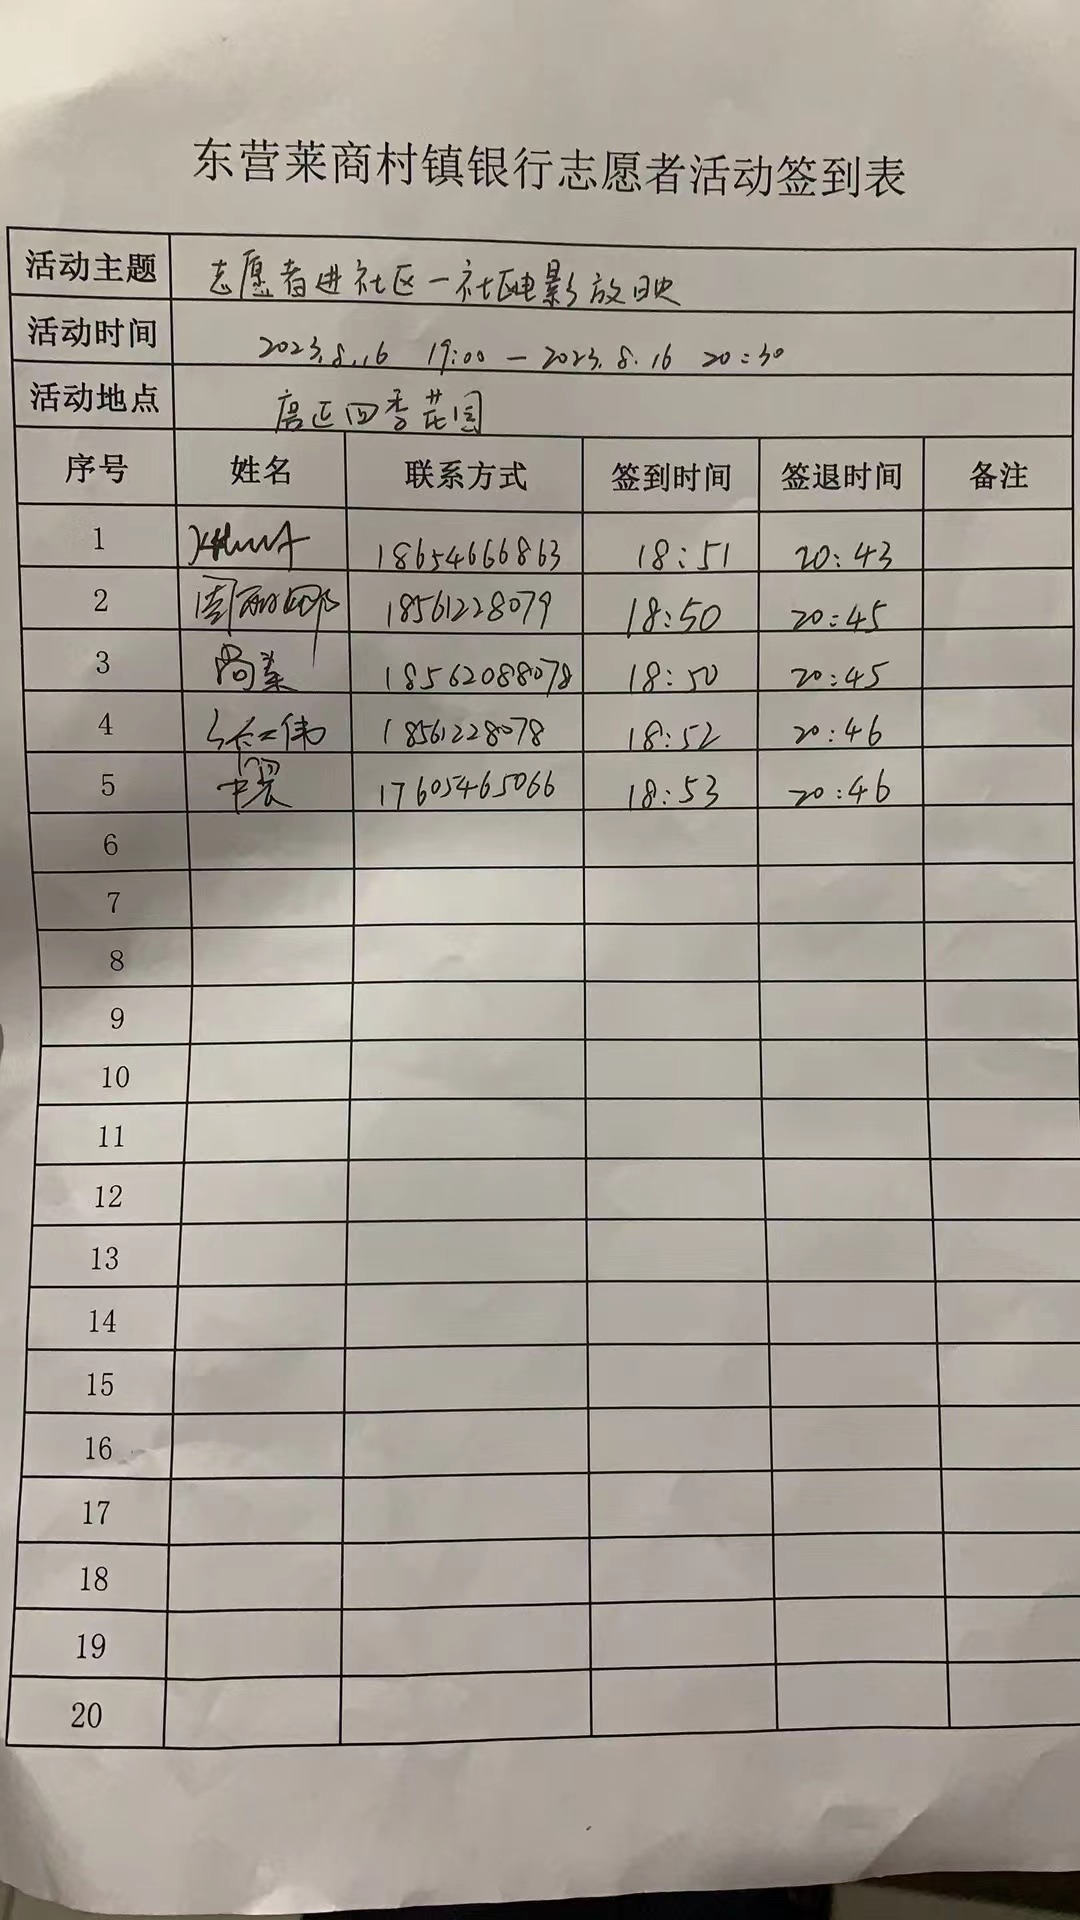 东营莱商村镇银行志愿者活动签到表
活动主题 志愿者进社区一社区电影放映
活动时间 2023.8.16 19:00 — 2023.8.16 20:30
活动地点 四季花园
序号 姓名 联系方式 签到时间 签退时间 备注
1 18654666863 18:51 20:43
2 周丽娜 18561228079 18:50 20:45
3 尚美 18562088078 18:50 20:45
4 红伟 18561228078 18:52 20:46
5 17605465066 18:53 20:46
6
7
8
9
10
11
12
13
14
15
16
17
18
19
20